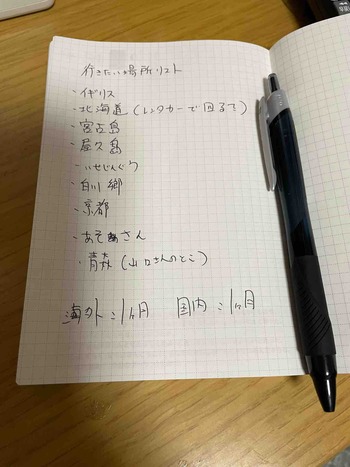 行きたい場所リスト
・イギリス
・北海道（レンタカーで回るで）
・宮古島
・屋久島
・いせじんぐう
・白川郷
・京都
・あそさん
・青森（山口さんのところ）
海外：1ヶ月 国内：1ヶ月